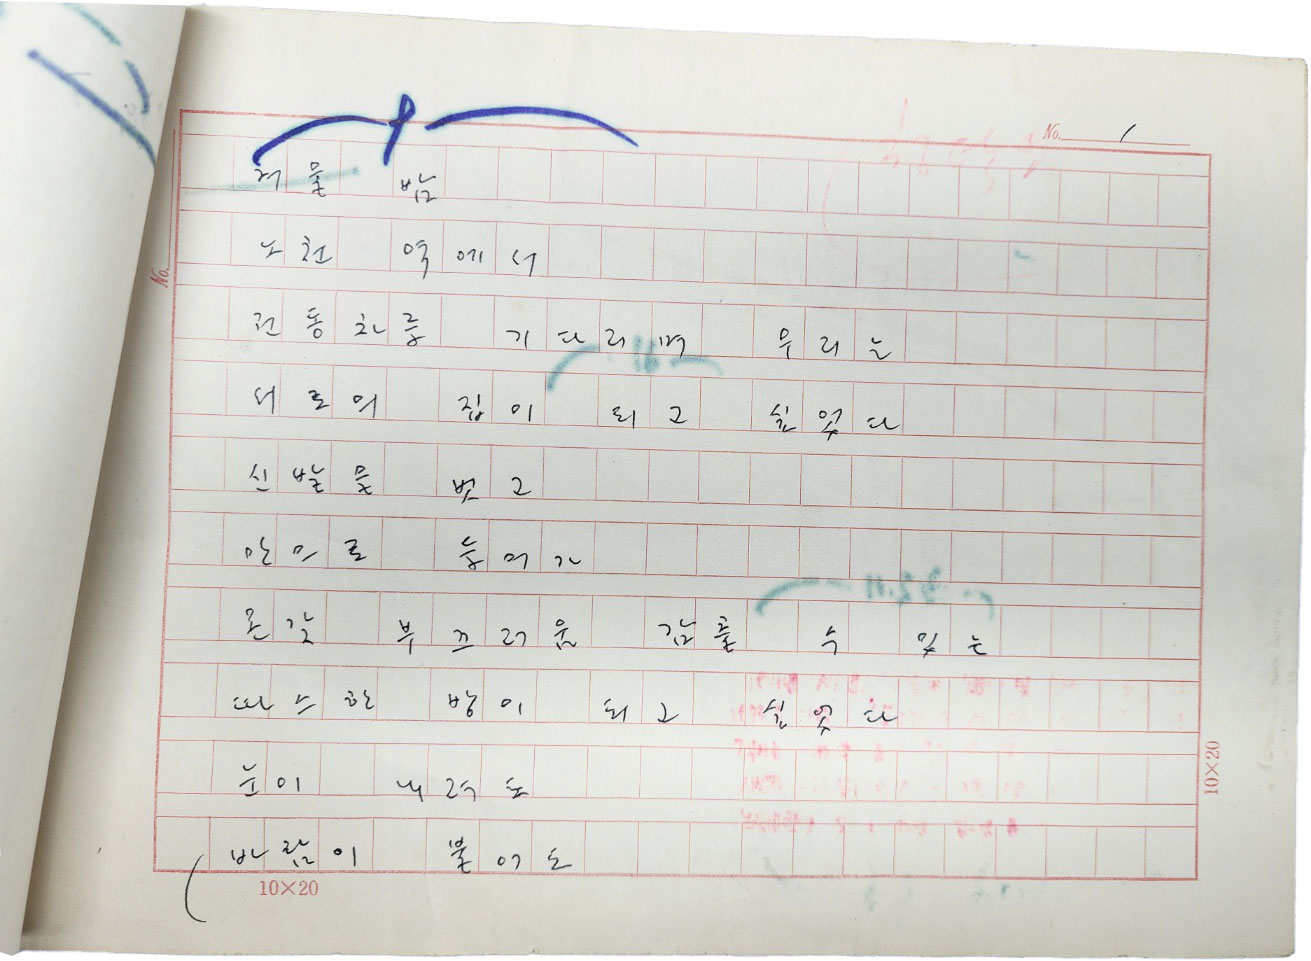 No. 1
겨울 밤
노천 역에서
전동차를 기다리며 우리는
서로의 집이 되고 싶었다
신발을 벗고
안으로 들어가
온갖 부끄러움 감출 수 있는
따스한 방이 되고 싶었다
눈이 내려도
바람이 불어도
10×20
10×20
No.